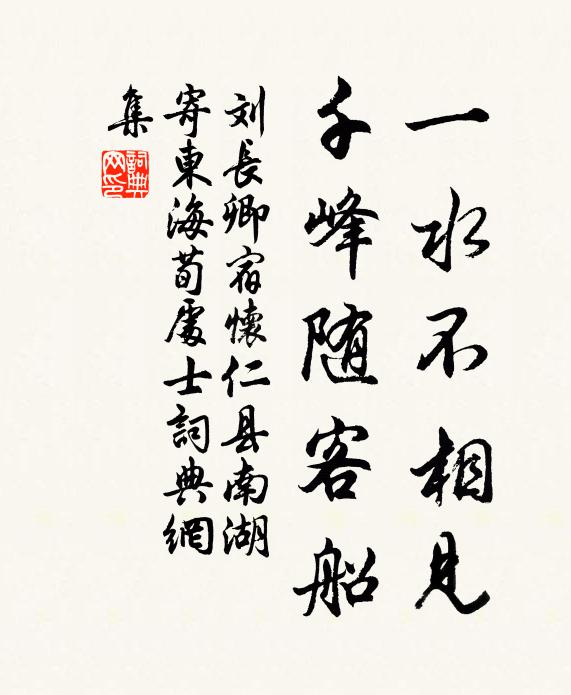 一水不相見
千峰随客船
刘長卿宿懷仁县南湖
寄東海荀處士詞典網
集
詞典网印